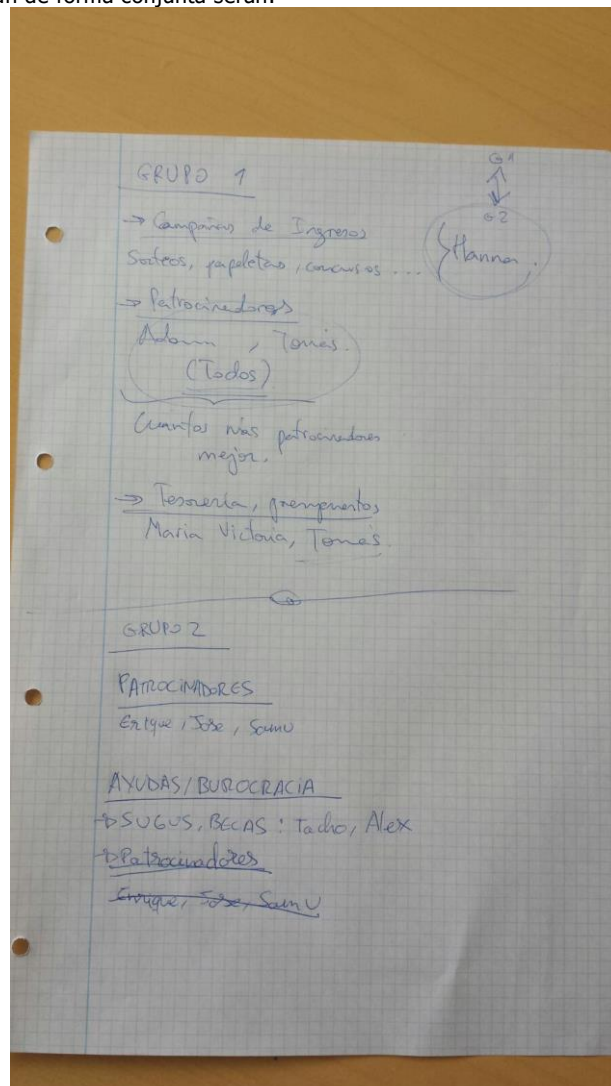 an de forma conjunta serán:
GRUPO 1
G1
G2
Hanna.
→ Campañas de Ingresos
Sorteos, papeletas, concursos ...
→ Patrocinadores
Adam, Tomás.
(Todos)
Cuantos más patrocinadores
mejor.
→ Tesorería, presupuestos
Maria Victoria, Tomás.
GRUPO 2
PATROCINADORES
Enrique, Jose, Samu
AYUDAS/BUROCRACIA
→ SUGUS, BECAS: Tacho, Alex
→ Patrocinadores
Enrique, Jose, Samu